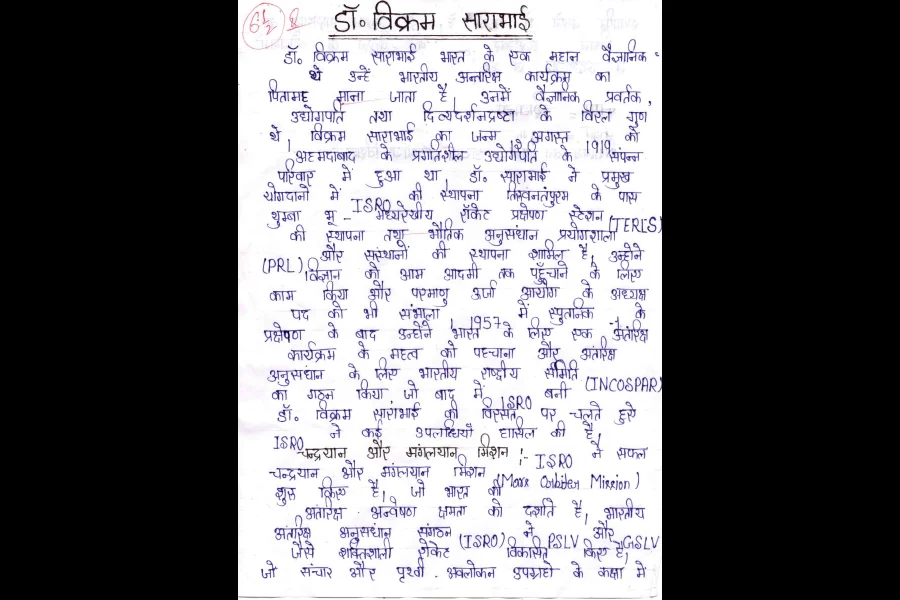 6½
डॉ॰ विक्रम साराभाई
डॉ॰ विक्रम साराभाई भारत के एक महान वैज्ञानिक
थे उन्हें भारतीय अन्तरिक्ष कार्यक्रम का
पितामह माना जाता है, उनमें वैज्ञानिक प्रवर्तक,
उद्योगपति तथा दिव्यदर्शनद्रष्टा के विरल गुण
थे, विक्रम साराभाई का जन्म अगस्त 1919 को
अहमदाबाद के प्रगतिशील उद्योगपति के संपन्न
परिवार में हुआ था, डॉ॰ साराभाई ने प्रमुख
योगदानों में ISRO की स्थापना तिरुवनंतपुरम के पास
थुम्बा भू - मध्यरेखीय रॉकेट प्रक्षेपण स्टेशन (TERLS)
की स्थापना तथा भौतिक अनुसंधान प्रयोगशाला
(PRL) और संस्थानों की स्थापना शामिल है, उन्होंने
विज्ञान को आम आदमी तक पहुँचाने के लिए
काम किया और परमाणु ऊर्जा आयोग के अध्यक्ष
पद को भी संभाला, 1957 में स्पुतनिक -1 के
प्रक्षेपण के बाद उन्होंने भारत के लिए एक अंतरिक्ष
कार्यक्रम के महत्व को पहचाना और अंतरिक्ष
अनुसंधान के लिए भारतीय राष्ट्रीय समिति (INCOSPAR)
का गठन किया, जो बाद में ISRO बनी
डॉ॰ विक्रम साराभाई की विरासत पर चलते हुए
ISRO ने कई उपलब्धियाँ हासिल की है,
चन्द्रयान और मंगलयान मिशन :- ISRO ने सफल
चन्द्रयान और मंगलयान मिशन (Mars Orbiter Mission)
शुरू किए है, जो भारत की
अंतरिक्ष अन्वेषण क्षमता को दर्शाते है, भारतीय
अंतरिक्ष अनुसंधान संगठन (ISRO) ने PSLV और GSLV
जैसे शक्तिशाली रॉकेट विकसित किए है,
जो संचार और पृथ्वी - अवलोकन उपग्रहो के कक्षा मे